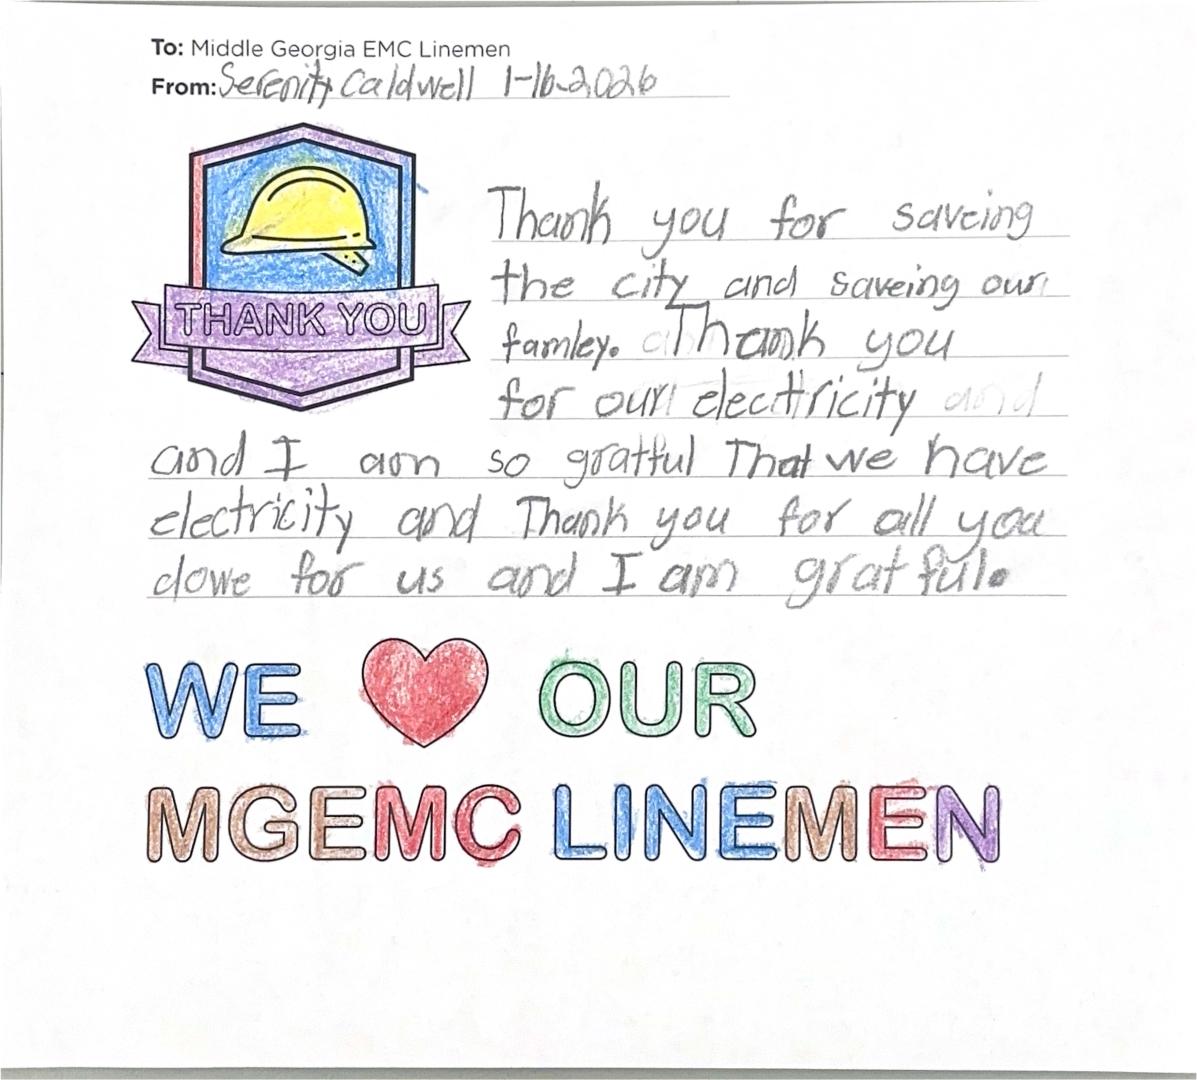 To: Middle Georgia EMC Linemen
From: Serenity Caldwell 1-16-2026
THANK YOU
Thank you for saveing
the city and saveing our
famley. Thank you
for our electtricity and
and I am so gratful That we have
electricity and Thank you for all you
dowe for us and I am gratful.
WE OUR
MGEMC LINEMEN